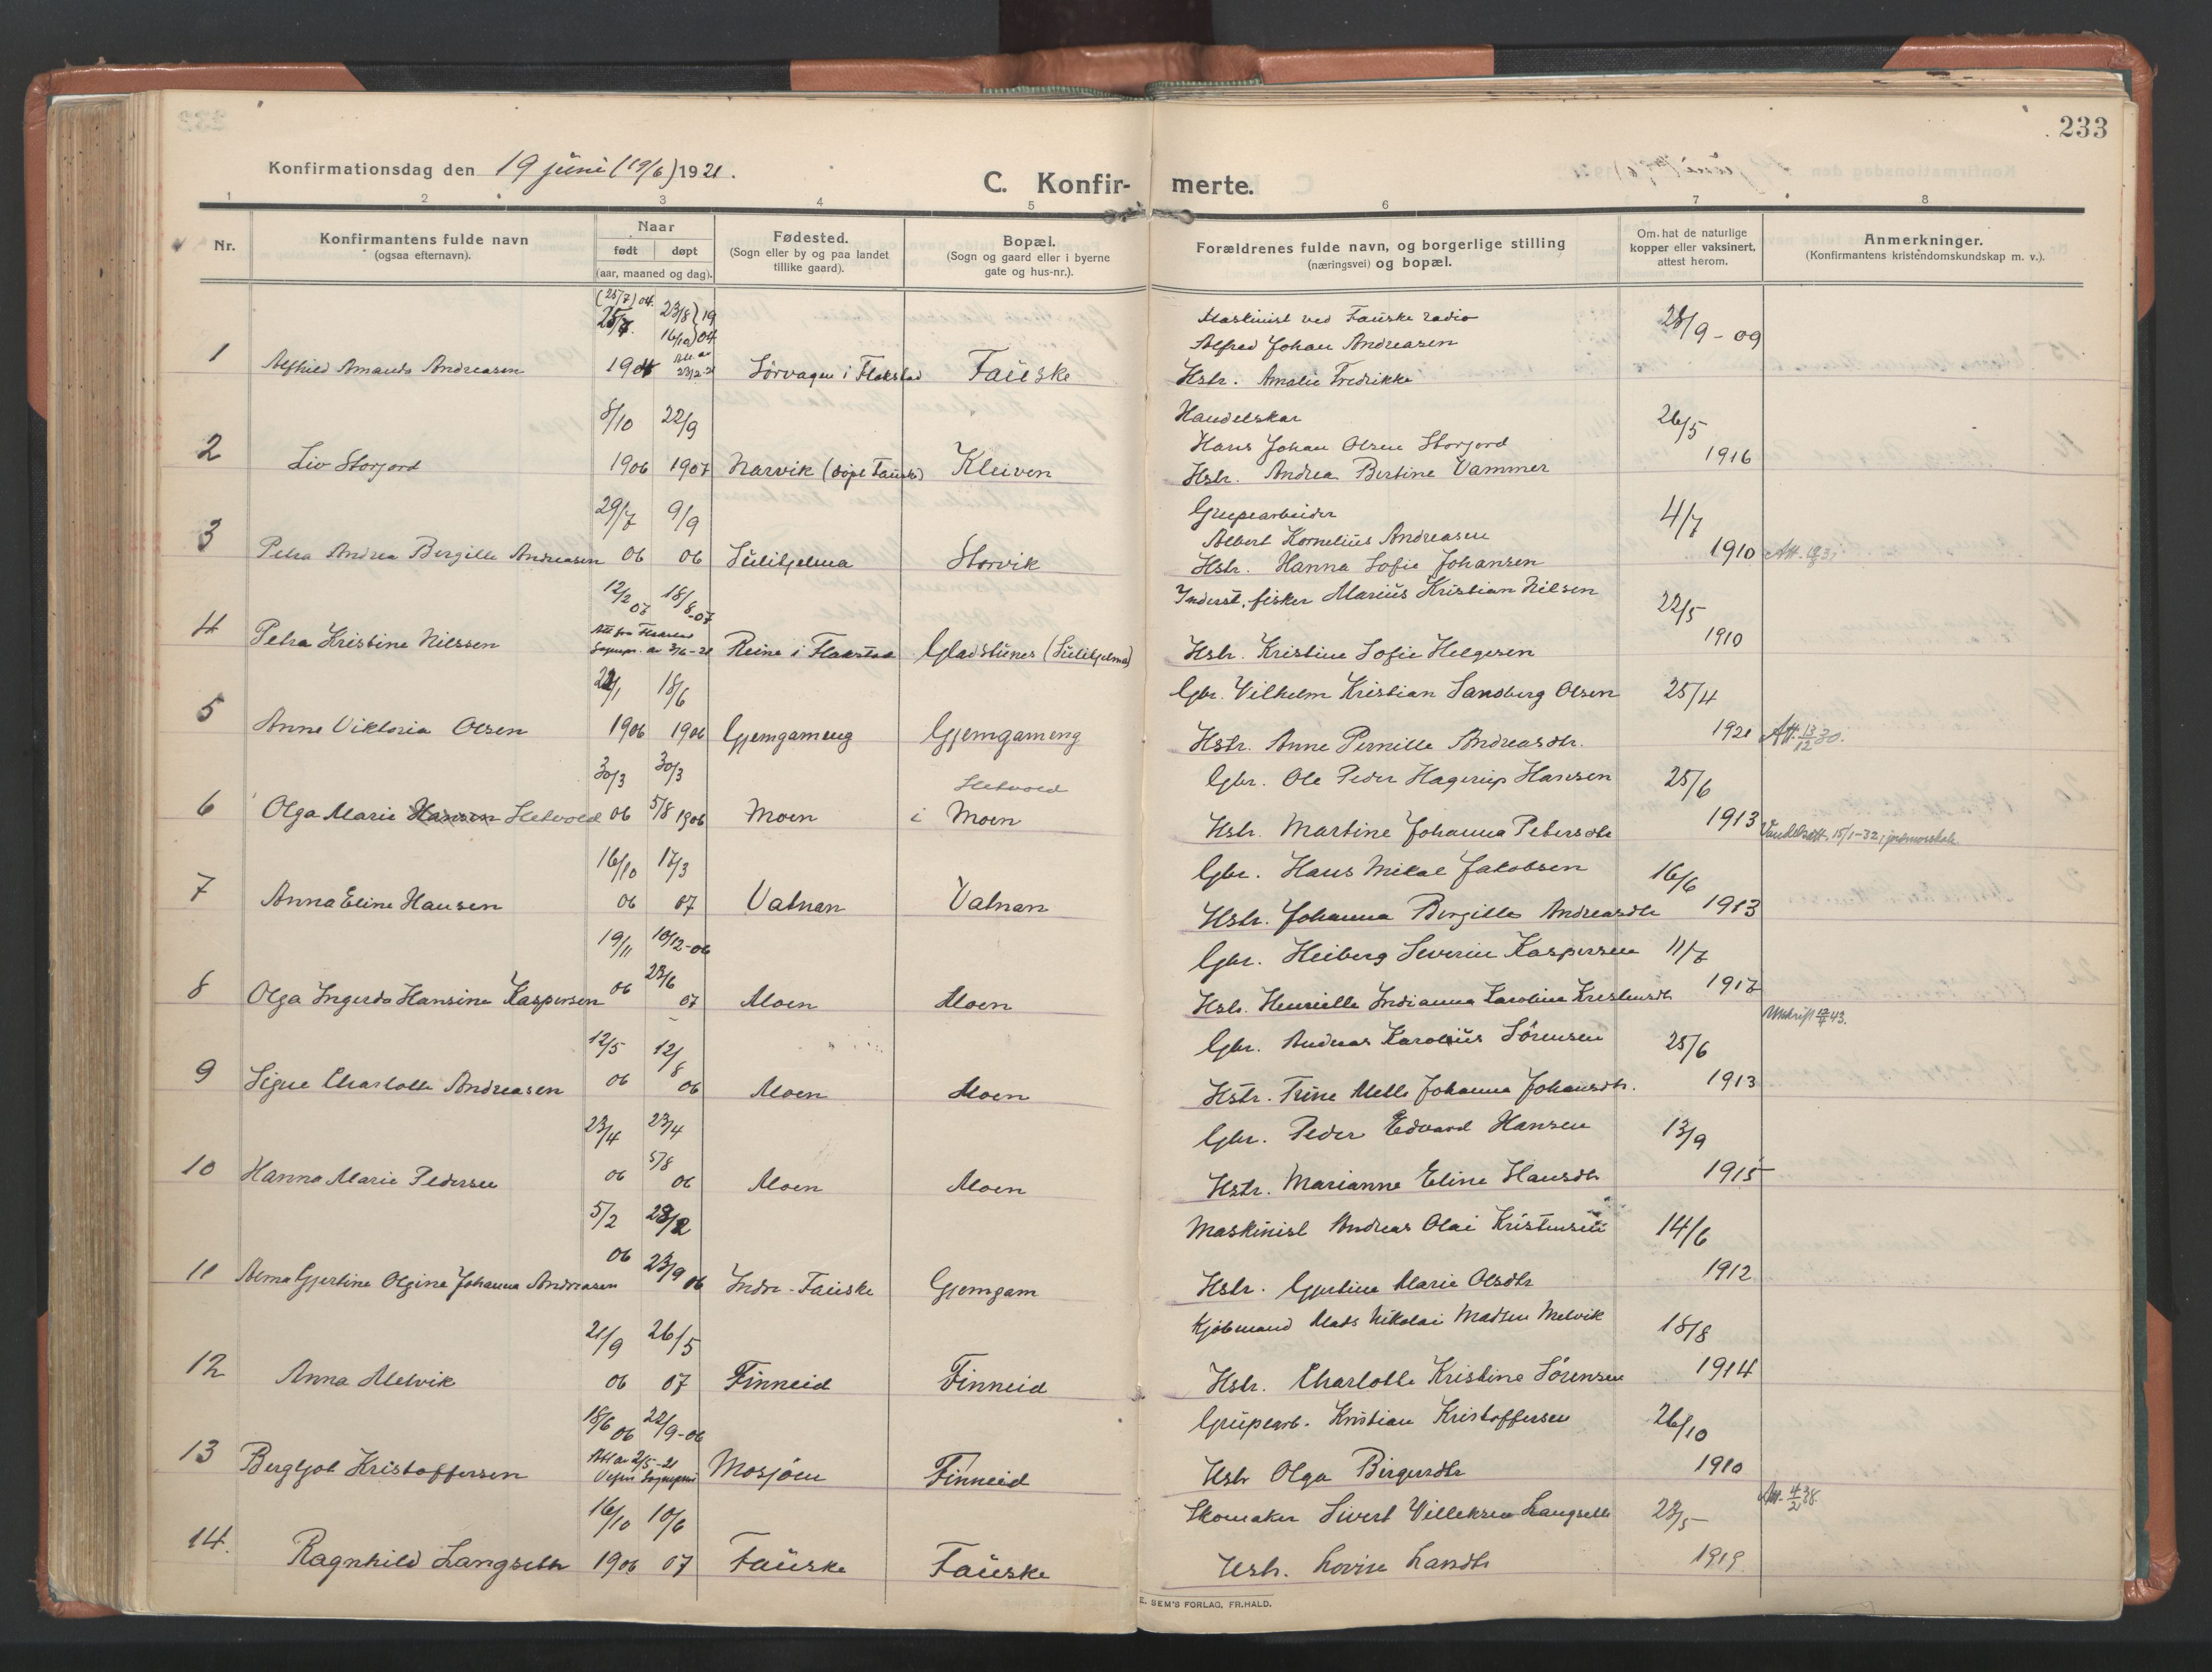 233
Konfirmationsdag den 19 juni (19/6) 1921.
C. Konfir- merte.
1 2 3 4 5 6 7 8
Nr.
Konfirmantens fulde navn
(ogsaa efternavn).
Naar
født døpt
(aar, maaned og dag).
Fødested.
(Sogn eller by og paa landet
tillike gaard).
Bopæl.
(Sogn og gaard eller i byerne
gate og hus-nr.).
Forældrenes fulde navn, og borgerlige stilling
(næringsvei) og bopæl.
Om hat de naturlige
kopper eller vaksinert,
attest herom.
Anmerkninger.
(Konfirmantens kristendomskundskap m. v.).
(25/7) 04. 23/8 } 19 Maskinist ved Fauske radio
25/7. 16/10 } 04 Alfred Johan Andreasen 28/9 - 09
1 Alfhild Amanda Andreasen 1904 Att. av 23/2-21 Sörvagen i Flakstad Fauske Hstr. Amalie Fredrikke
8/10 22/9 Handelskar 26/5
Hans Johan Olsen Storjord
2 Liv Storjord 1906 1907 Narvik (döpt Fauske) Kleiven Hstr. Andrea Bertine Vammer 1916
29/7 9/9 Grupearbeider 4/7
Albert Kornelius Andreasen
3 Petra Andrea Bergitte Andreasen 06 06 Sulitjelma Storvik Hstr. Hanna Sofie Johansen 1910
12/2 07 18/8-07 Inderst, fisker Marius Kristian Nilsen 22/5
4 Petra Kristine Nilssen Att fra Flakstad Sognepr. av 3/6-21 Reine i Flakstad Gladstunes (Sulitjelma) Hstr. Kristine Sofie Helgesen 1910
22/1 18/6 Gbr. Vilhelm Kristian Sandberg Olsen 25/4
5 Anne Viktoria Olsen 1906 1906 Gjemgameng Gjemgameng Hstr. Anne Pernille Andreasdtr. 1921 Att. 13/12 30.
30/3 30/3 Hetvold Gbr. Ole Peder Hagerup Hansen 25/6
6 Olga Marie Hansen Hetvold 06 5/8 1906 Moen i Moen Hstr. Martine Johanna Petersdtr 1913 Vandelsatt. 15/1-32; jordmorskole.
16/10 17/3 Gbr. Hans Mikal Jakobsen 16/6
7 Anna Eline Hansen 06 07 Vatnan Vatnan Hstr. Johanna Bergitte Andreasdtr 1913
19/11 10/12-06 Gbr. Heiberg Severin Kaspersen 11/7
8 Olga Ingerda Hansine Kaspersen 06 23/6 07 Moen Moen Hstr. Henriette Indianna Karoline Kristensdtr 1917
Utskrift 43.
12/5 12/8 Gbr. Andreas Karolius Sörensen 25/6
9 Signe Charlotte Andreasen 06 06 Moen Moen Hstr. Trine Mette Johanna Johansdtr. 1913
23/4 23/4 Gbr. Peder Edvard Hansen 13/9
10 Hanna Marie Pedersen 06 5/8 06 Moen Moen Hstr. Marianne Eline Hansdtr 1915
5/2 28/2 Maskinist Andreas Olai Kristensen 14/6
11 Alma Gjertine Olgine Johanna Andreasen 06 23/9 06 Indre-Fauske Gjemgam Hstr. Gjertine Marie Olsdtr 1912
21/9 26/5 Kjöbmand Mads Nikolai Madsen Metvik 18/8
12 Anna Metvik 06 07 Finneid Finneid Hstr. Charlotte Kristine Sörensen 1914
18/6 06 22/9-06 Grupearb. Kristian Kristoffersen 26/10
13 Bergljot Kristoffersen Att av 2/5-21 Vefsn Sognepr. Mosjöen Finneid Hstr Olga Birgersdtr 1910
Att. 4/2 38.
16/10 10/6 Skomaker Sivert Villeksen Langseth 23/5
14. Ragnhild Langseth 1906 07 Fauske Fauske Hstr. Lovise Larsdtr 1919
E. SEM'S FORLAG, FR.HALD.